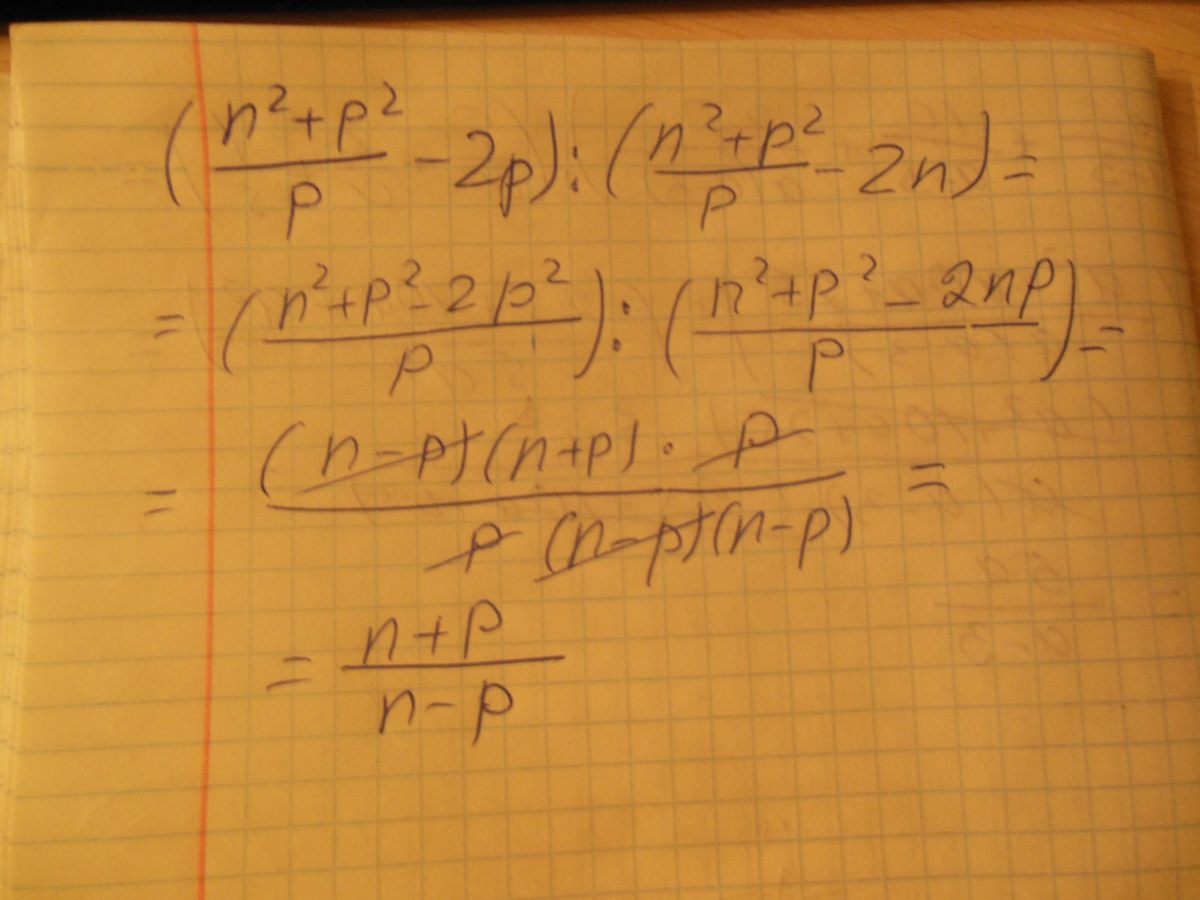 (\frac{n^2+p^2}{p} - 2p) : (\frac{n^2+p^2}{p} - 2n) =
= (\frac{n^2+p^2-2p^2}{p}) : (\frac{n^2+p^2-2np}{p}) =
= \frac{(n-p)(n+p) \cdot p}{p(n-p)(n-p)} =
= \frac{n+p}{n-p}